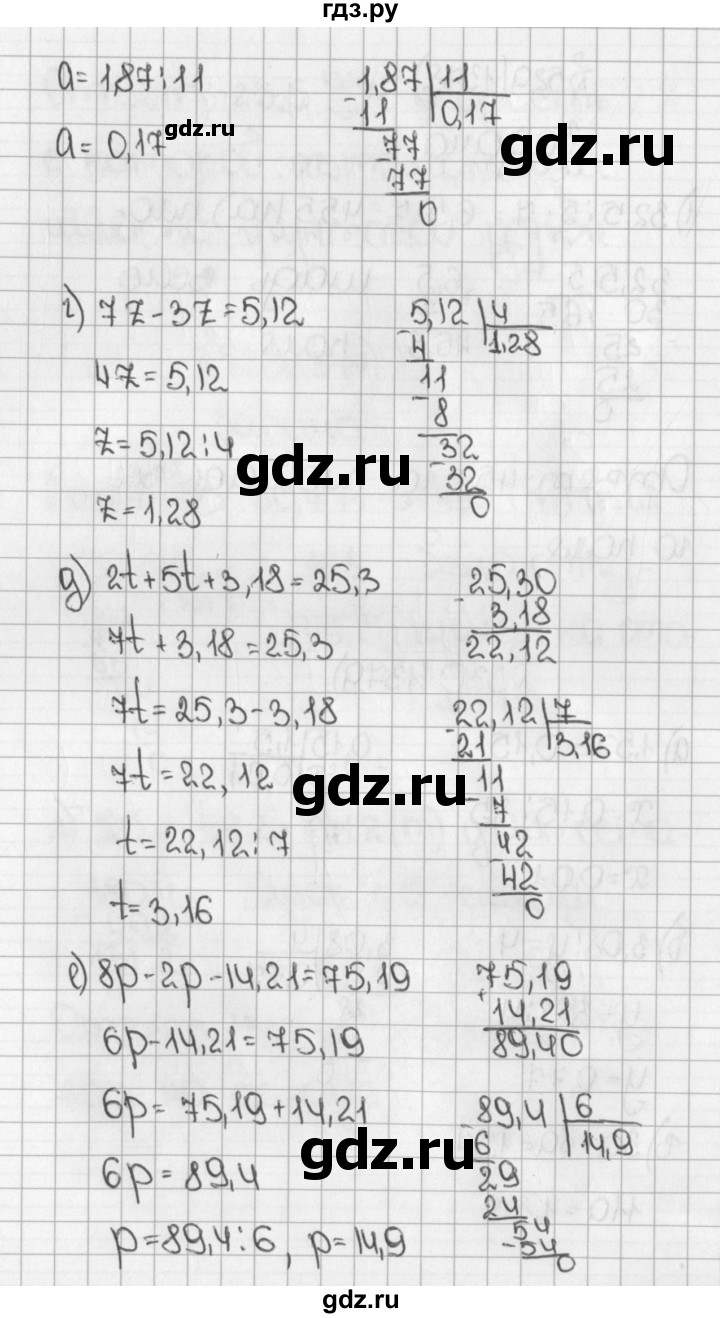 гдз.ру
a = 1,87 : 11
1,87 | 11
11
0,17
77
77
0
a = 0,17
gdz.ru
gdz.ru
г) 7z - 3z = 5,12
5,12 | 4
4
1,28
11
8
32
32
0
4z = 5,12
z = 5,12 : 4
z = 1,28
gdz.ru
gdz.ru
д) 2t + 5t + 3,18 = 25,3
25,30
3,18
22,12
7t + 3,18 = 25,3
7t = 25,3 - 3,18
22,12 | 7
21
3,16
11
7
42
42
0
7t = 22,12
t = 22,12 : 7
t = 3,16
gdz.ru
е) 8p - 2p - 14,21 = 75,19
75,19
+
14,21
89,40
6p - 14,21 = 75,19
6p = 75,19 + 14,21
89,4 | 6
6
14,9
29
24
54
-54
0
6p = 89,4
p = 89,4 : 6, p = 14,9
gdz.ru
gdz.ru
gdz.ru